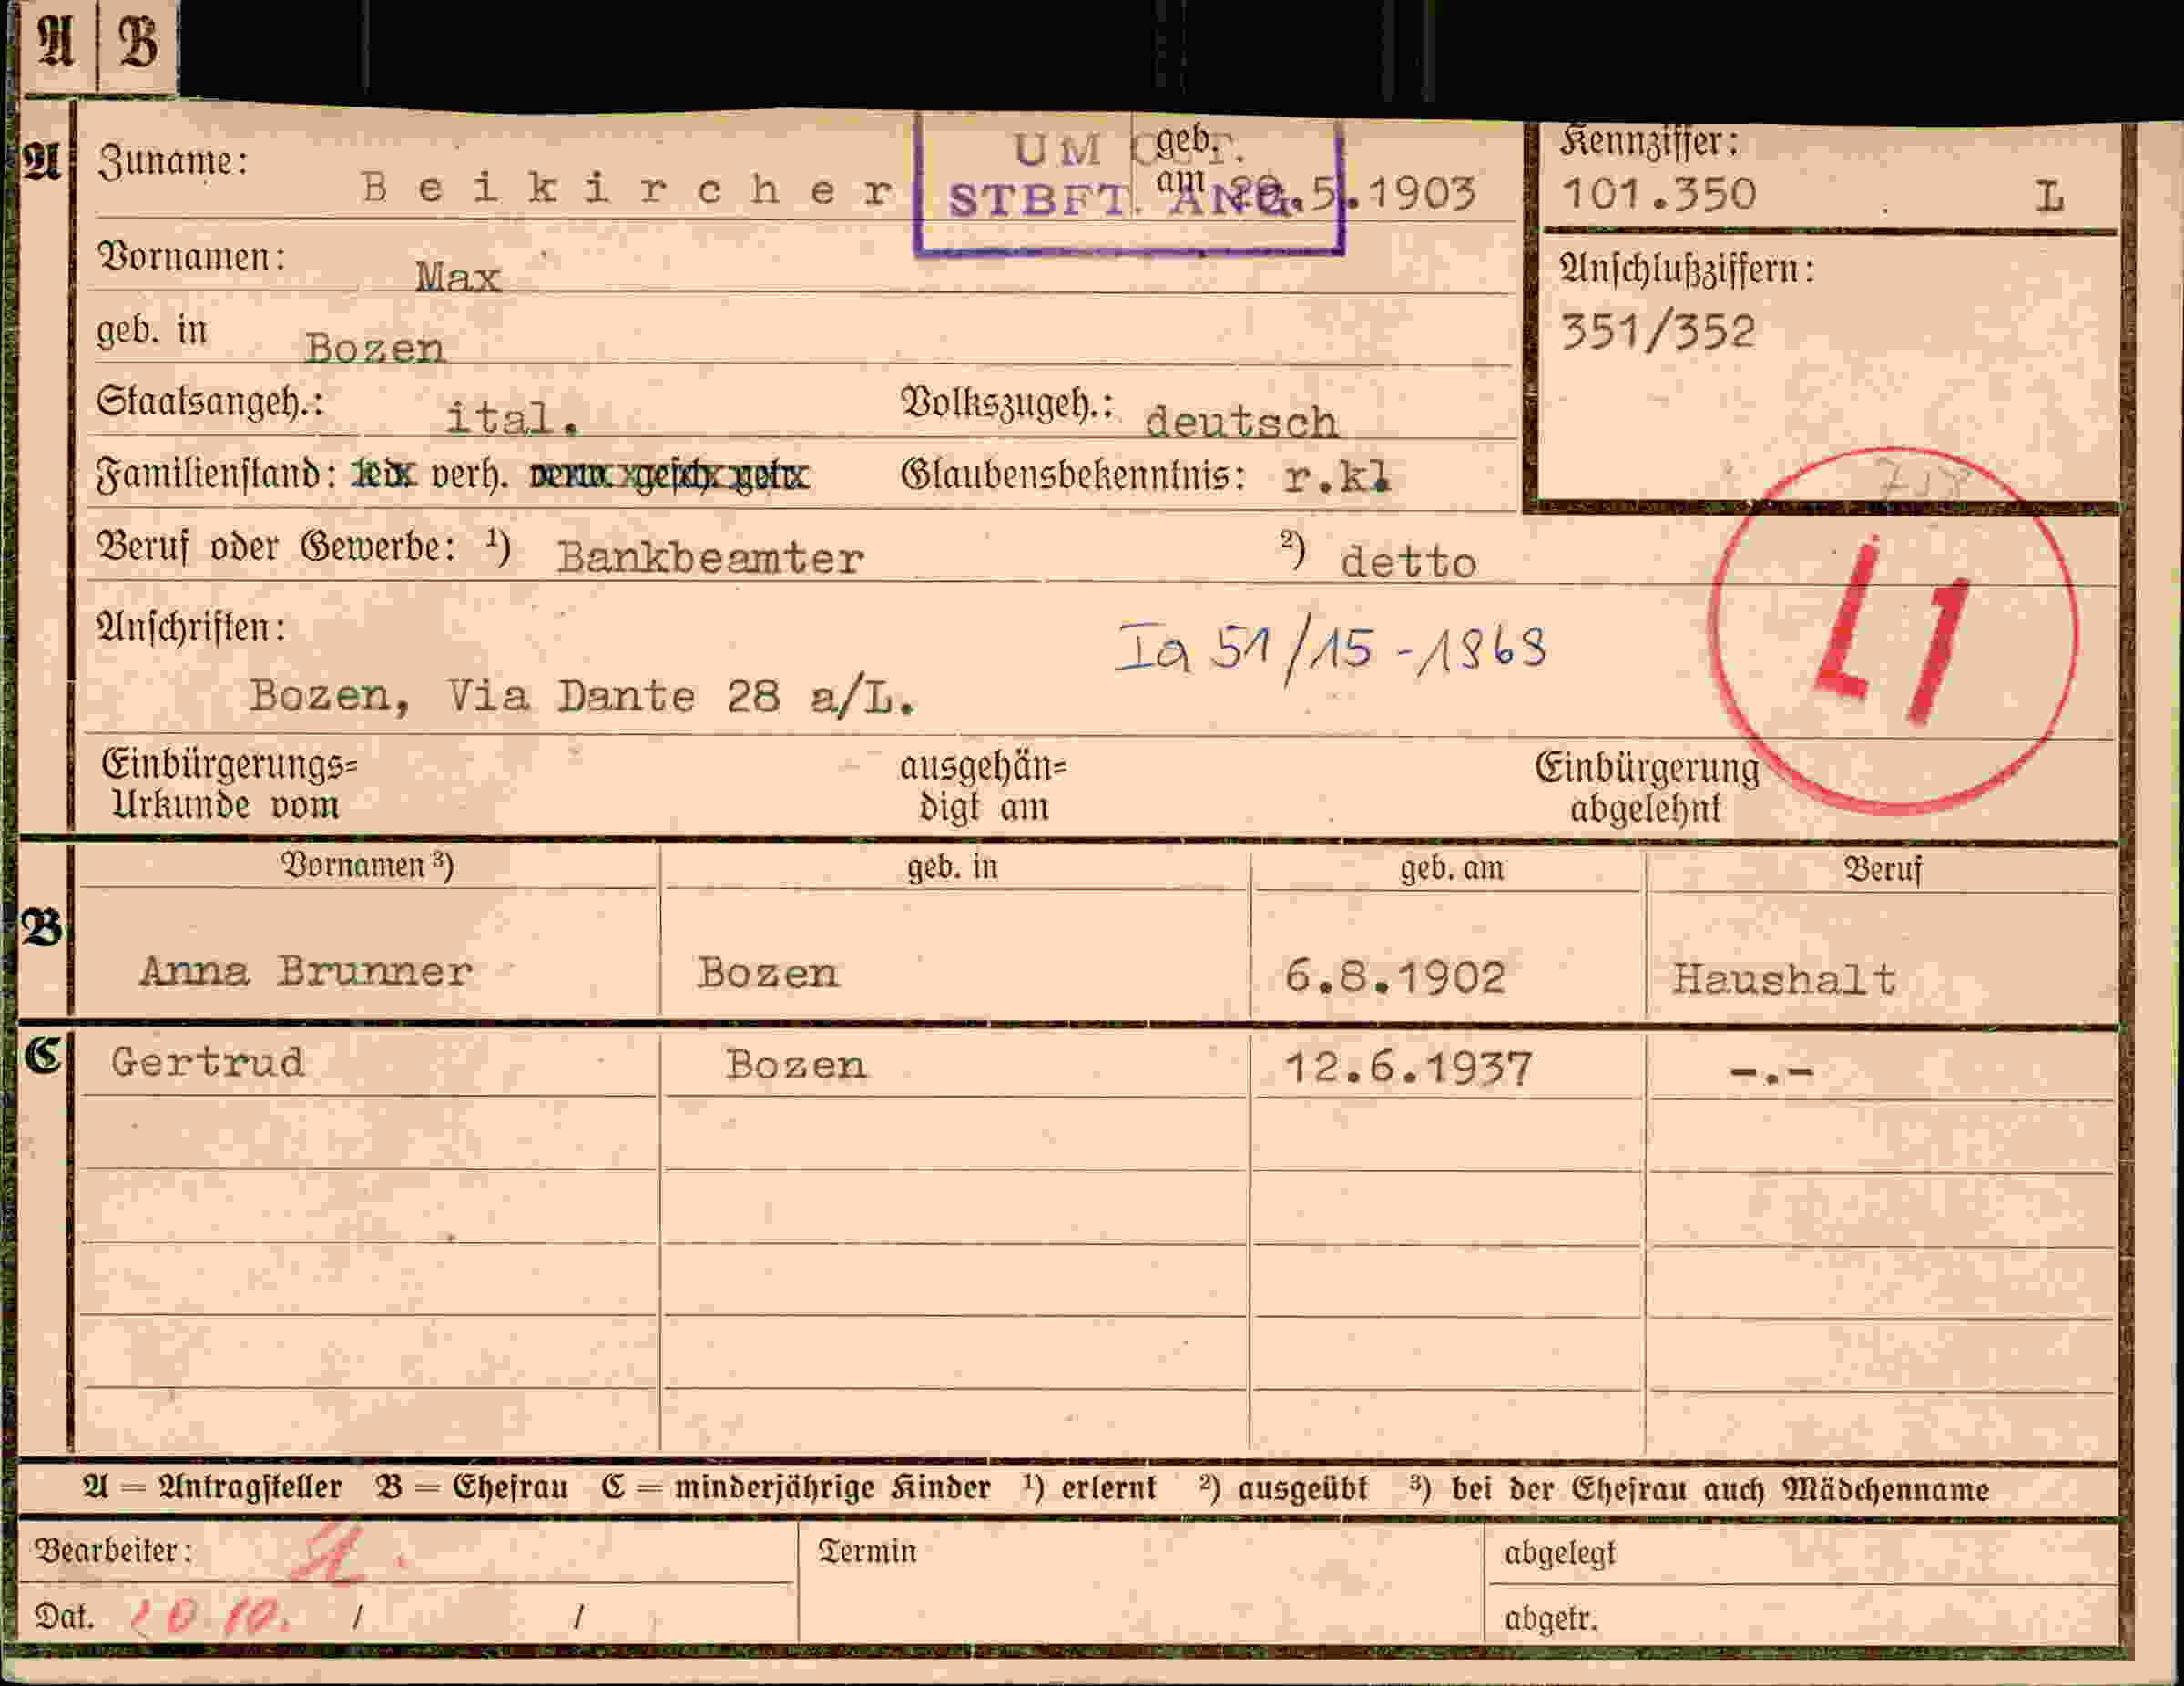 A B
A Zuname: Beikircher geb. am 20.5.1903
UM
STBFT. ANG.
Kennziffer:
101.350 L
Vornamen: Max
Anschlußziffern:
351/352
geb. in Bozen
Staatsangeh.: ital. Volkszugeh.: deutsch
Familienstand: led. verh. verw. gesch. getr. Glaubensbekenntnis: r.kl
Beruf oder Gewerbe: ¹) Bankbeamter ²) detto
L1
Anschriften:
Ia 51/15-1969
Bozen, Via Dante 28 a/L.
Einbürgerungs= ausgehän= Einbürgerung
Urkunde vom digt am abgelehnt
Vornamen ³) geb. in geb. am Beruf
B Anna Brunner Bozen 6.8.1902 Haushalt
C Gertrud Bozen 12.6.1937 -.-
A = Antragsteller B = Ehefrau C = minderjährige Kinder ¹) erlernt ²) ausgeübt ³) bei der Ehefrau auch Mädchenname
Bearbeiter: Termin abgelegt
Dat. 20 10. / / abgetr.